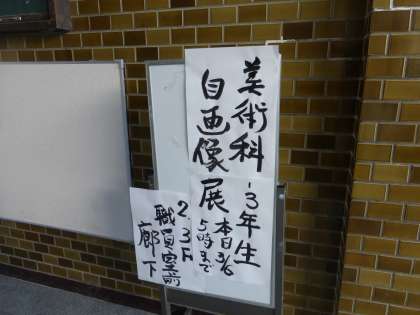 美術科-3年生
自画像展
本日3/6
5時まで
2.3F
職員室前
廊下